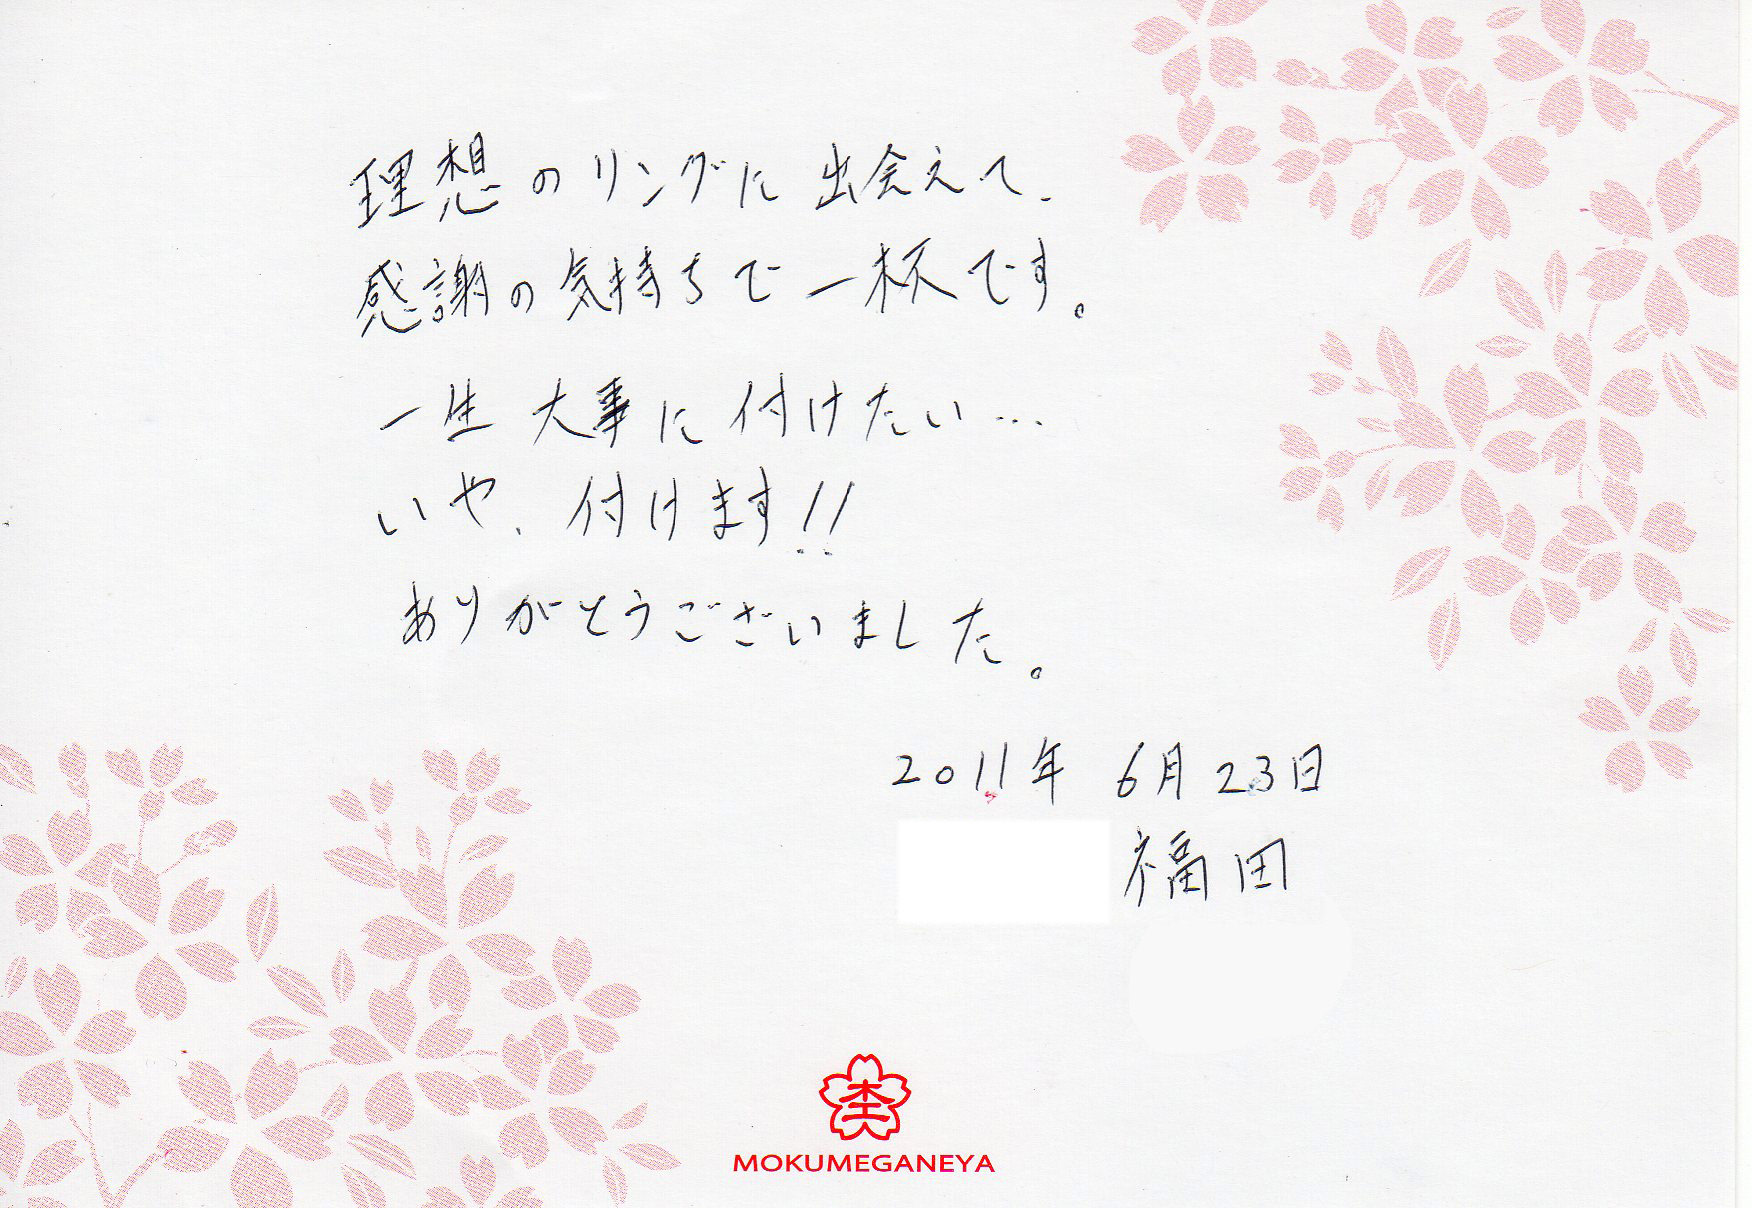 理想のリングに出会えて、
感謝の気持ちで一杯です。
一生大事に付けたい…
いや、付けます!!
ありがとうございました。
2011年 6月23日
福田
MOKUMEGANEYA